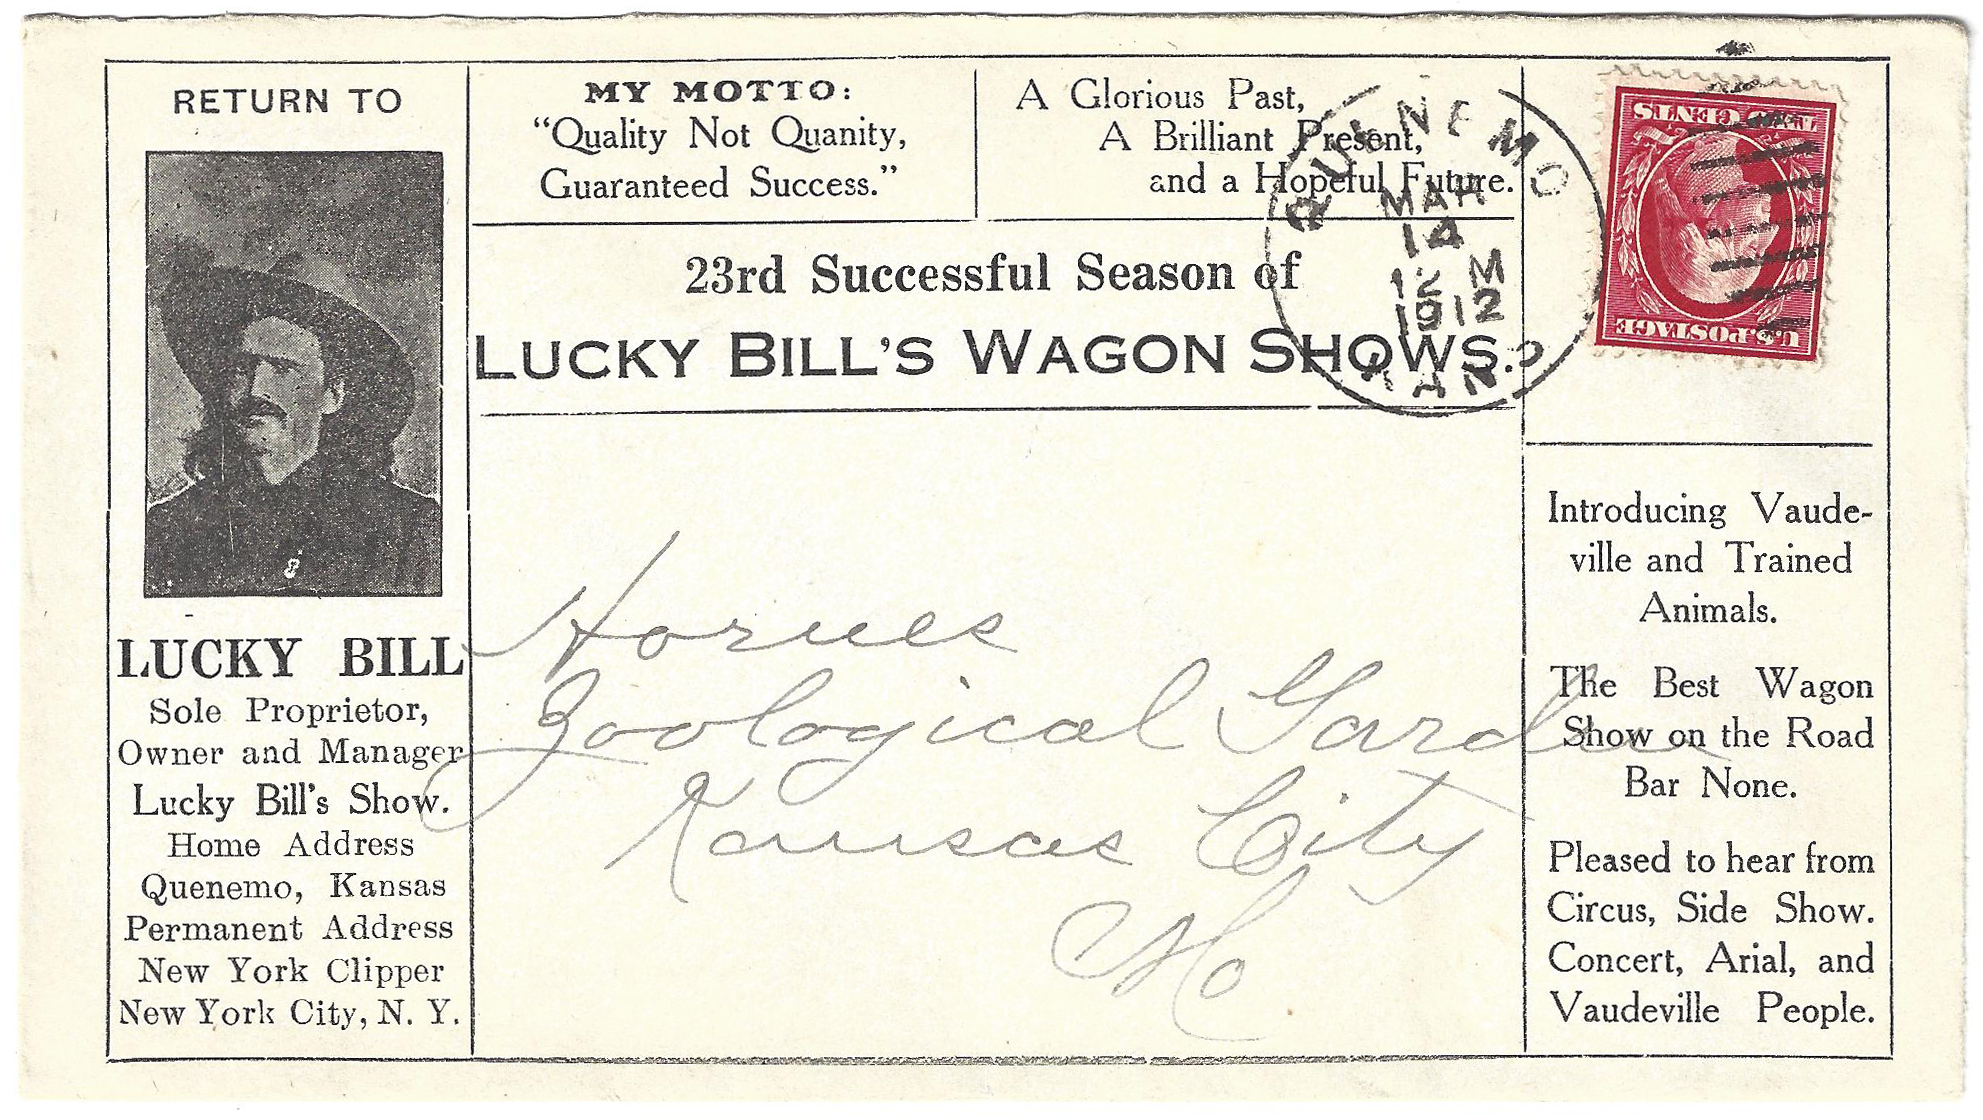 RETURN TO
LUCKY BILL
Sole Proprietor,
Owner and Manager
Lucky Bill's Show.
Home Address
Quenemo, Kansas
Permanent Address
New York Clipper
New York City, N. Y.
MY MOTTO:
“Quality Not Quanity,
Guaranteed Success.”
A Glorious Past,
A Brilliant Present,
and a Hopeful Future.
23rd Successful Season of
LUCKY BILL'S WAGON SHOWS.
QUENEMO
MAR
14
12 M
1912
KANS
TWO CENTS
U.S. POSTAGE
Hornes
Zoological Garden
Kansas City
Mo
Introducing Vaude-
ville and Trained
Animals.
The Best Wagon
Show on the Road
Bar None.
Pleased to hear from
Circus, Side Show.
Concert, Arial, and
Vaudeville People.